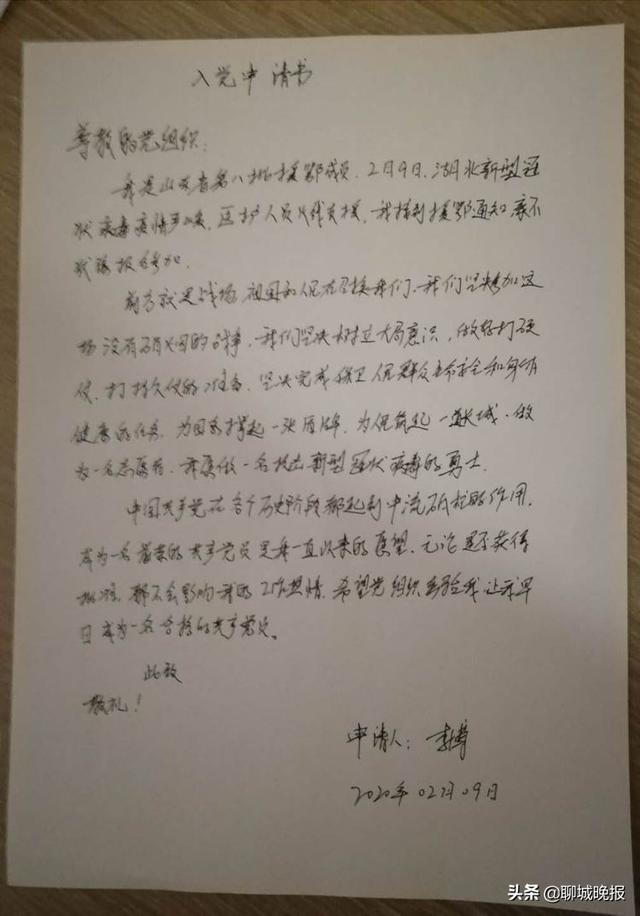 入党申请书
尊敬的党组织：
我是山东省第八批援鄂成员，2月9日，湖北新型冠
状病毒疫情严峻，医护人员火线支援，我接到援鄂通知
报名参加。
前方就是战场，祖国和人民在召唤我们，我们坚决参加这
场没有硝烟的战争，我们坚决树立大局意识，做好打硬
仗、打持久仗的准备，坚决完成保卫人民群众生命安全和身体
健康的任务，为国家撑起一张盾牌，为人民筑起一道长城，做
为一名志愿者，我要做一名抗击新型冠状病毒的勇士。
中国共产党在各个历史阶段都起到中流砥柱的作用，
成为一名光荣的共产党员是我一直以来的愿望，无论是否获得
批准，都不会影响我的工作热情，希望党组织考验我，让我早
日成为一名合格的共产党员。
此致
敬礼！
申请人：李
2020年02月09日
头条 @聊城晚报